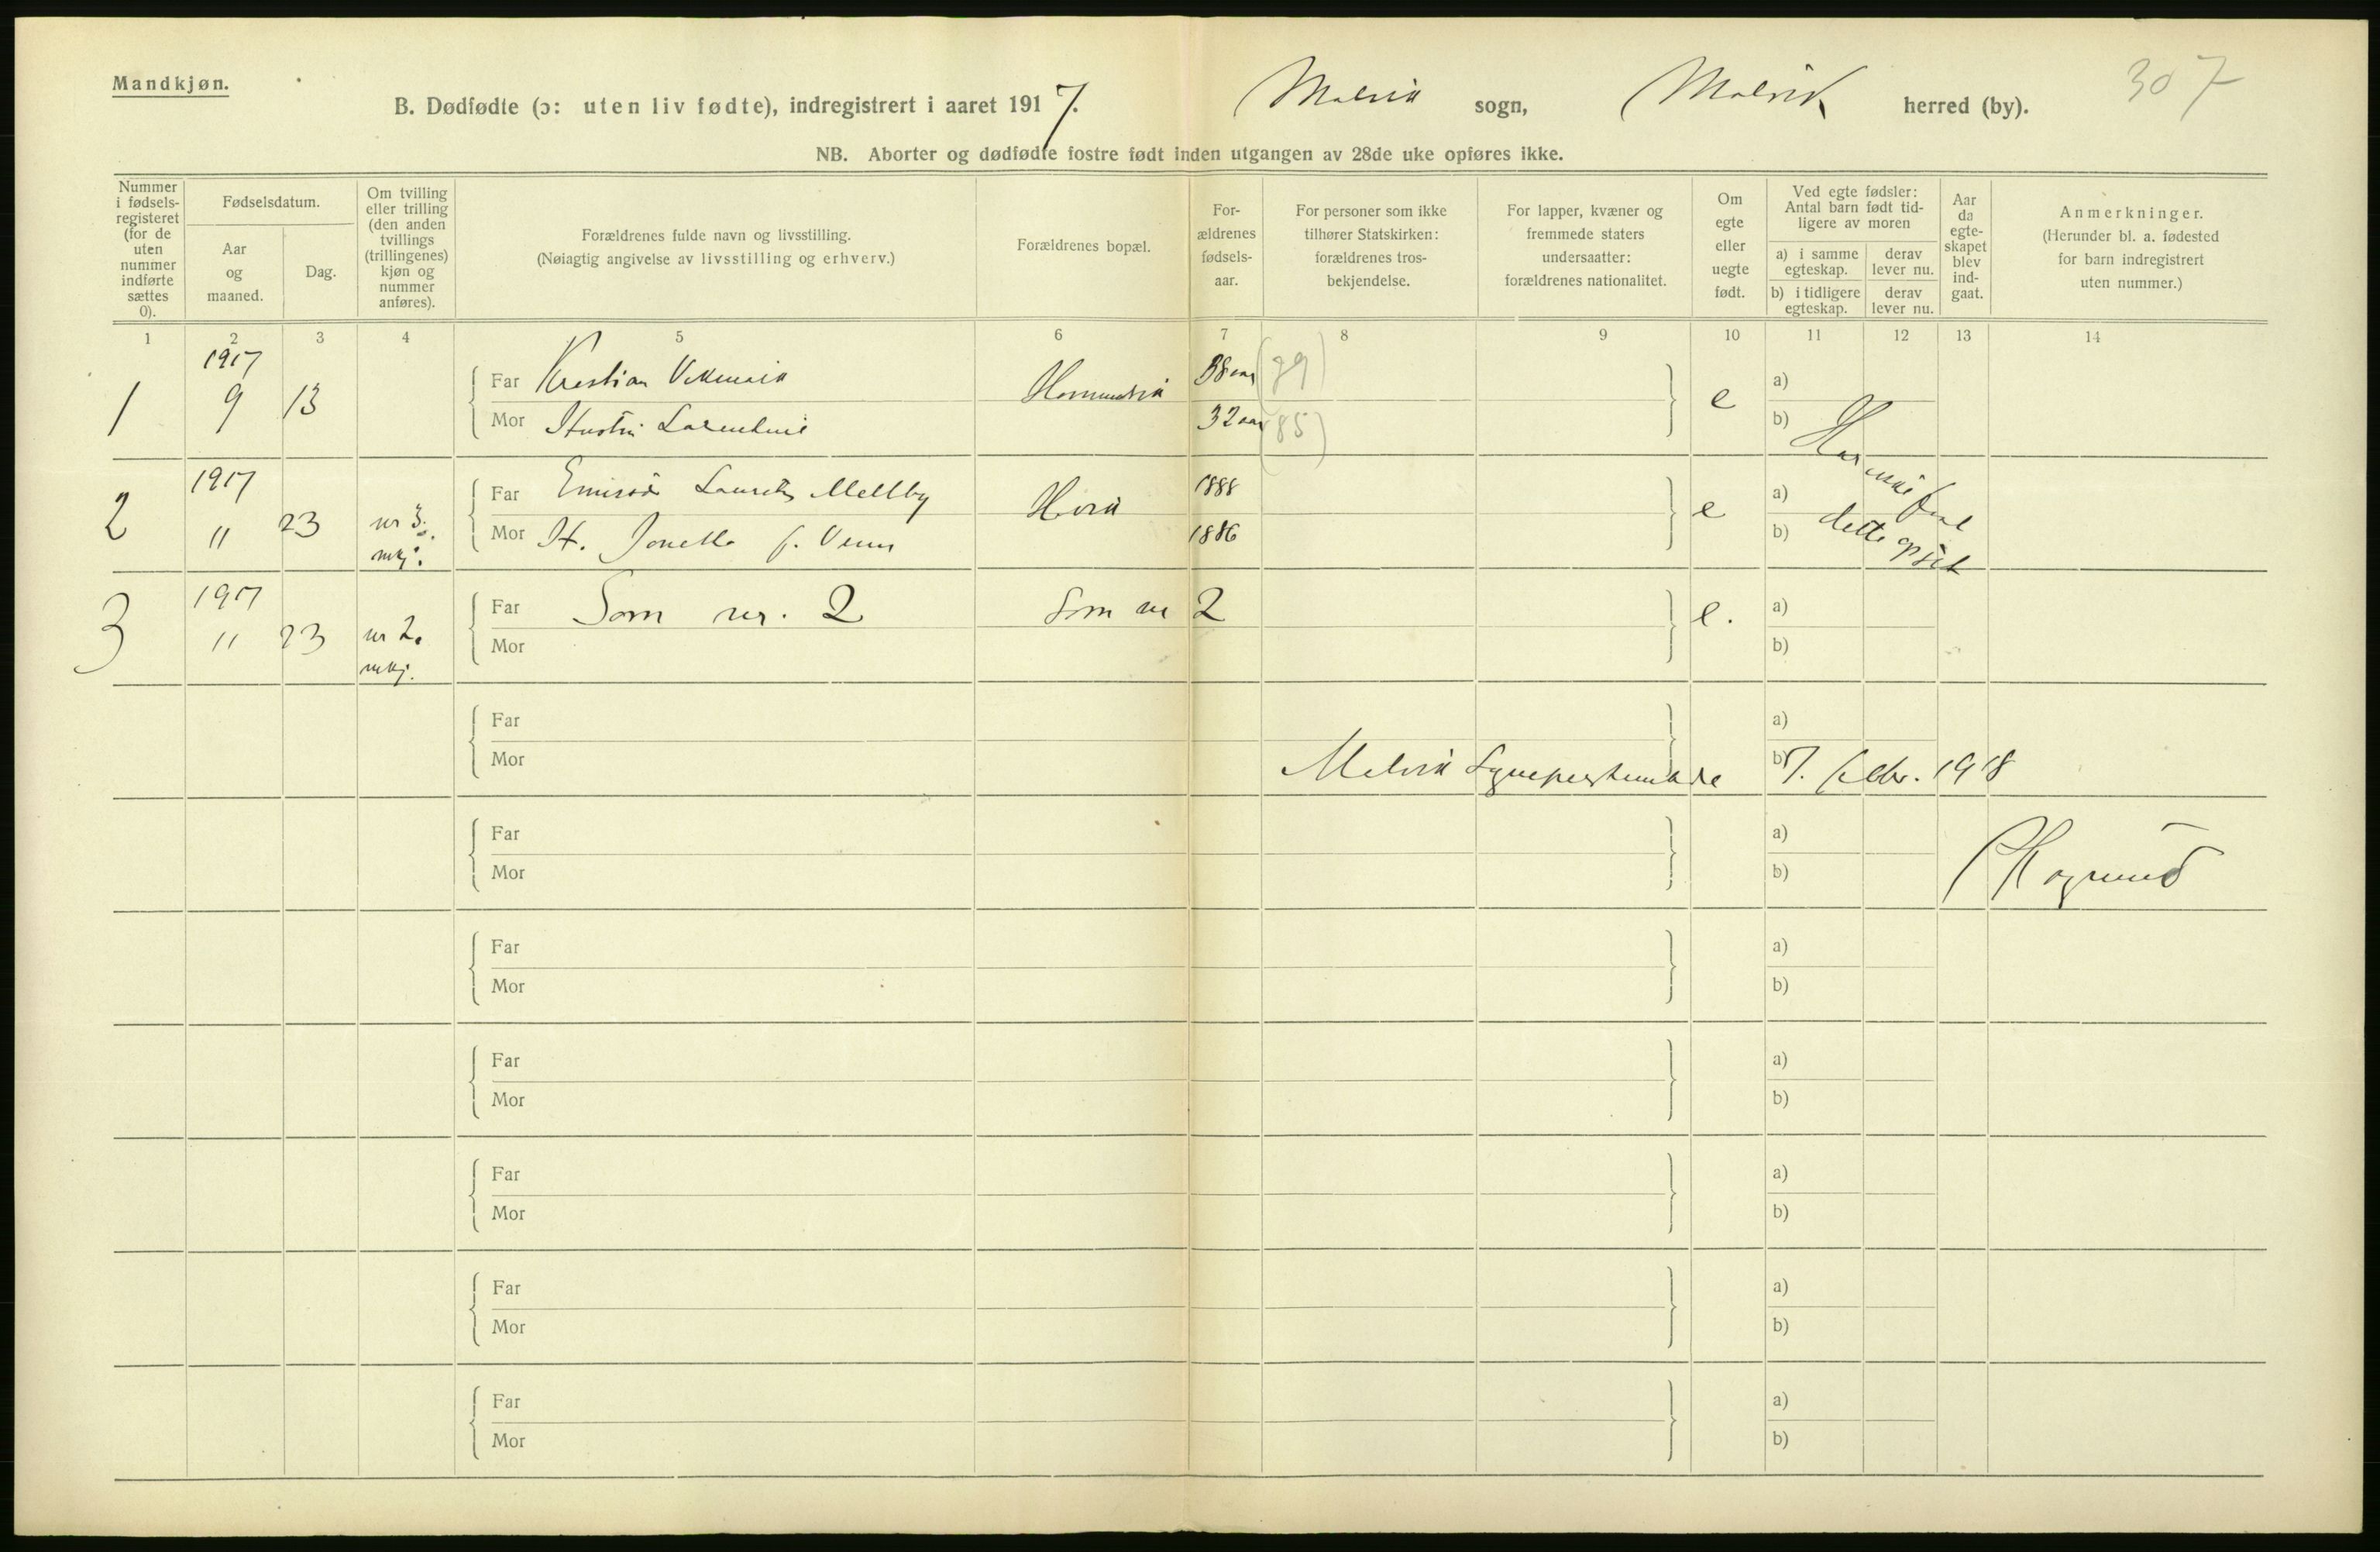 Mandkjøn.
307
B. Dødfødte (ɔ: uten liv fødte), indregistrert i aaret 1917. Malvik sogn, Malvik herred (by).
NB. Aborter og dødfødte fostre født inden utgangen av 28de uke opføres ikke.
Nummer
i fødsels-
registeret
(for de
uten
nummer
indførte
sættes
0).
Fødselsdatum.
Aar
og
maaned.
Dag.
Om tvilling
eller trilling
(den anden
tvillings
(trillingenes)
kjøn og
nummer
anføres).
Forældrenes fulde navn og livsstilling.
(Nøiagtig angivelse av livsstilling og erhverv.)
Forældrenes bopæl.
For-
ældrenes
fødsels-
aar.
For personer som ikke
tilhører Statskirken:
forældrenes tros-
bekjendelse.
For lapper, kvæner og
fremmede staters
undersaatter:
forældrenes nationalitet.
Om
egte
eller
uegte
født.
Ved egte fødsler:
Antal barn født tid-
ligere av moren
a) i samme
egteskap.
derav
lever nu.
b) i tidligere
egteskap.
derav
lever nu.
Aar
da
egte-
skapet
blev
ind-
gaat.
Anmerkninger.
(Herunder bl. a. fødested
for barn indregistrert
uten nummer.)
1 2 3 4 5 6 7 8 9 10 11 12 13 14
1 1917 9 13
Far Kristian
38 aar (79)
Mor
32 aar (85)
e
a)
b)
Har ikke faat
dette opgit
2 1917 11 23 nr 3. mkj.
Far Laurits Mellby
Hvik
1888
Mor
1886
e
a)
b)
3 1917 11 23 nr 2. mkj.
Far Som nr. 2 Som nr 2
Mor
e.
a)
b)
Far
a)
Mor
b)
Malvik 7. febr. 1918
Far
a)
Mor
b)
Far
a)
Mor
b)
Far
a)
Mor
b)
Far
a)
Mor
b)
Far
a)
Mor
b)
Far
a)
Mor
b)